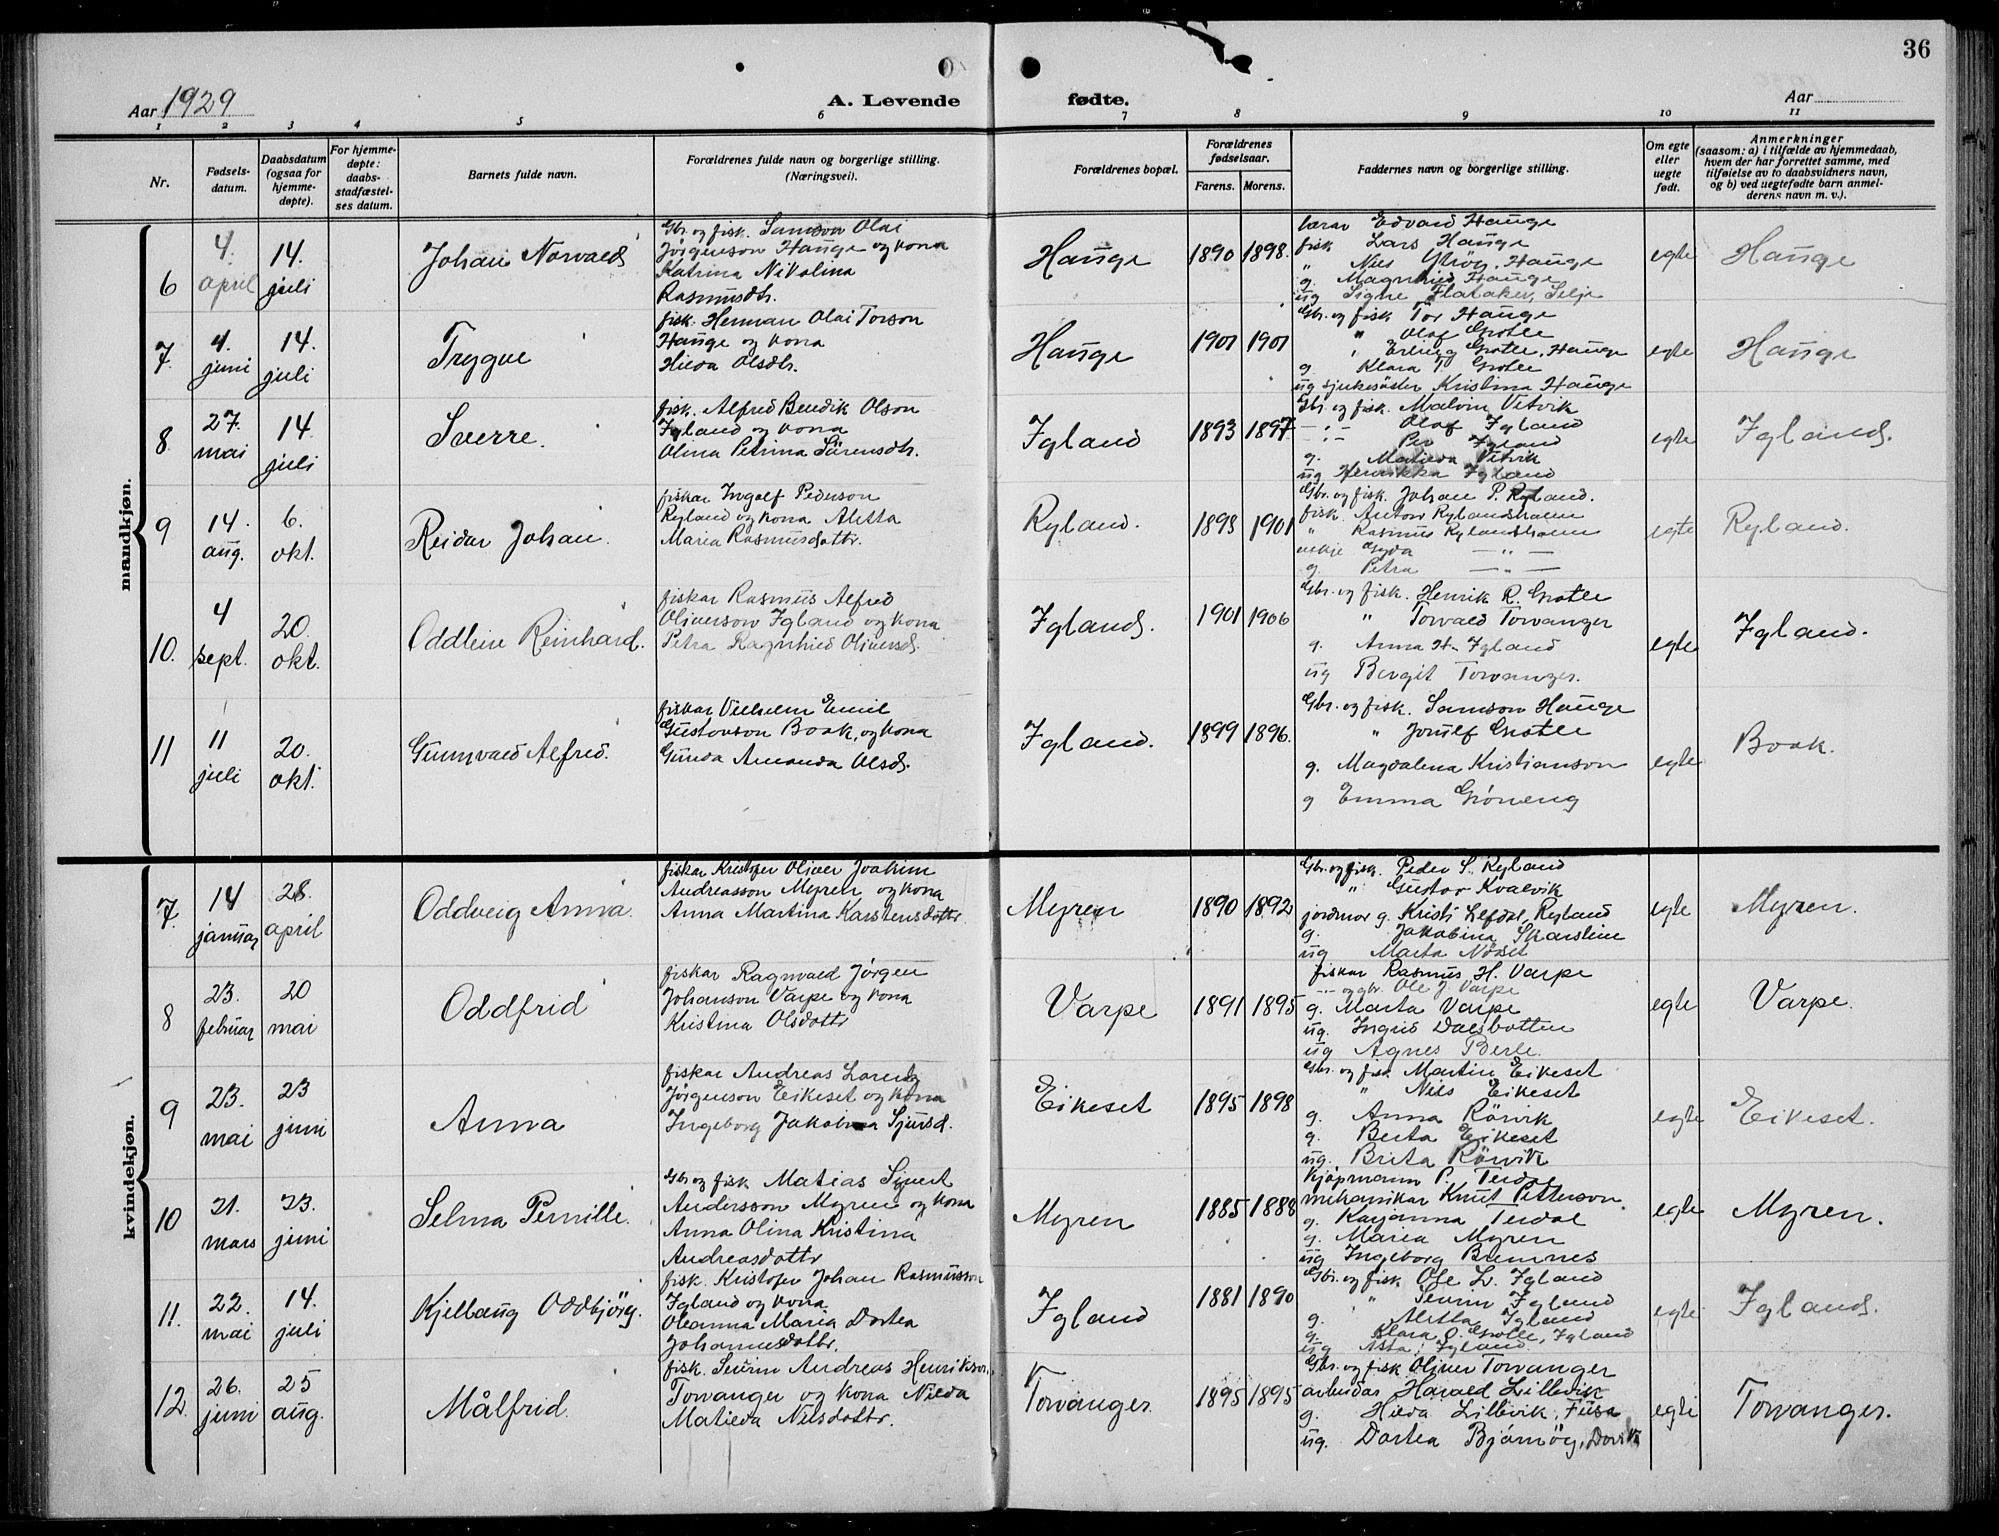 36
Aar 1929
A. Levende fødte.
Aar
1 2 3 4 5 6 7 8 9 10 11
Nr.
Fødsels-datum.
Daabsdatum (ogsaa for hjemme-døpte).
For hjemme-døpte: daabs-stadfæstel-ses datum.
Barnets fulde navn.
Forældrenes fulde navn og borgerlige stilling. (Næringsvei).
Forældrenes bopæl.
Forældrenes fødselsaar.
Farens. Morens.
Faddernes navn og borgerlige stilling.
Om egte eller uegte født.
Anmerkninger (saasom: a) i tilfælde av hjemmedaab, hvem der har forrettet samme, med tilføielse av to daabsvidners navn, og b) ved uegtefødte barn anmel-derens navn m. v.).
mandkjøn.
6
4. april
14. juli
Johan Norvald
Gbr. og fisk. Samson Olai
Jørgenson Hauge og kona
Katrina Nikolina
Rasmusdtr.
Hauge
1890 1898.
lærar Edvard Hauge
fisk Lars Hauge
" Nils Hauge
g. Magnhild Hauge
ug Signe Flataker, Selje
egte
Hauge
7.
4. juni
14. juli
Trygve
fisk. Herman Olai Torson
Hauge og kona
Hilda Olsdtr.
Hauge
1901 1901
Gbr. og fisk Tor Hauge
" Olaf Grotle
" Erling Grotle, Hauge
g. Klara T. Grotle
ug sjukesöster Kristina Hauge
egte
Hauge
8.
27. mai
14. juli
Sverre.
fisk. Alfred Bendik Olson
Igland og kona
Olina Petrina Sörensdtr.
Igland
1893 1897
Gbr. og fisk. Malvin Vetvik
Olaf Igland
Per Igland
g. Matilda Vetvik
ug Henrikka Igland
egte
Igland.
9
14. aug.
6. okt.
Reidar Johan.
fiskar Ingolf Pederson
Ryland og kona Aletta
Maria Rasmusdottr.
Ryland.
1893 1901
Gbr. og fisk. Johan P. Ryland.
fisk. Anton Rylandsholm
" Rasmus Rylandsholm
enkje Gyda — " —
g. Petra — " —
egte
Ryland.
10.
4 sept.
20. okt.
Oddleiv Reinhard.
fiskar Rasmus Alfred
Oliverson Igland og kona
Petra Ragnhild Oliversd.
Igland.
1901 1906
Gbr. og fisk. Henrik R. Grotle
" Torvald Torvanger
g. Anna H. Igland
ug Bergit Torvanger.
egte
Igland.
11
11 juli
20. okt.
Gunnvald Alfred.
fiskar Vilhelm Emil
Gustavson Book, og kona
Gunda Amanda Olsd.
Igland.
1899 1896.
Gbr. og fisk. Samson Hauge
" Jorulf Grotle
g. Magdalena Kristianson
g Emma Gröneng
egte
Book.
kvindekjøn.
7.
14 januar
28. april
Oddveig Anna.
fiskar Kristofer Oliver Joakim
Andreasson Myren og kona
Anna Martina Karstensdottr.
Myren
1890 1892
Gbr. og fisk. Peder S. Ryland
" Gustav Kvalvik
jordmor g. Kristi Lefdal, Ryland
g. Jakobina Skarstein
ug Marta Nöset
egte
Myren.
8
23. februar
20 mai
Oddfrid
fiskar Ragnvald Jørgen
Johanson Varpe og kona
Kristina Olsdottr
Varpe
1891 1895
fiskar Rasmus H. Varpe
og gbr. Ole J. Varpe
g. Marta Varpe
ug. Ingrid Dalsbotten
ug Agnes Berle.
egte
Varpe.
9
23. mai
23 juni
Anna
fiskar Andreas Lorentz
Jørgenson Eikeset og kona
Ingeborg Jakobina Sjursd.
Eikeset
1895 1898
Gbr. og fisk. Martin Eikeset
" Nils Eikeset
g. Anna Rörvik
g. Berta Eikeset
ug. Brita Rörvik
egte
Eikeset.
10
21. mars
23. juni
Selma Pernille.
Gbr. og fisk Matias Sivert
Andersson Myren og kona
Anna Olina Kristina
Andreasdottr
Myren
1885 1888
Kjøpmann P. Terdal
mekanikar Knut Petterson
g. Karjanna Terdal
g. Maria Myren
ug Ingeborg Bremnes
egte
Myren.
11.
22. mai
14. juli
Kjellaug Oddbjörg.
fisk. Kristofer Johan Rasmusson
Igland og kona
Oleanna Maria Dortea
Johannesdottr.
Igland
1881 1890
Gbr. og fisk Ole L. Igland
" Severin Igland
g. Aletta Igland
g. Klara O. Grotle, Igland
ug Asta Igland
egte
Igland.
12.
26. juni
25 aug.
Målfrid.
fisk. Severin Andreas Henrikson
Torvanger og kona Nilda
Matilda Nilsdottr.
Torvanger
1895 1895
Gbr. og fisk Oliver Torvanger
arbeidar Harald Lillevik
g. Hilda Lillevik, Fusa
ug. Dortea Bjørnöy, Davik
egte
Torvanger.